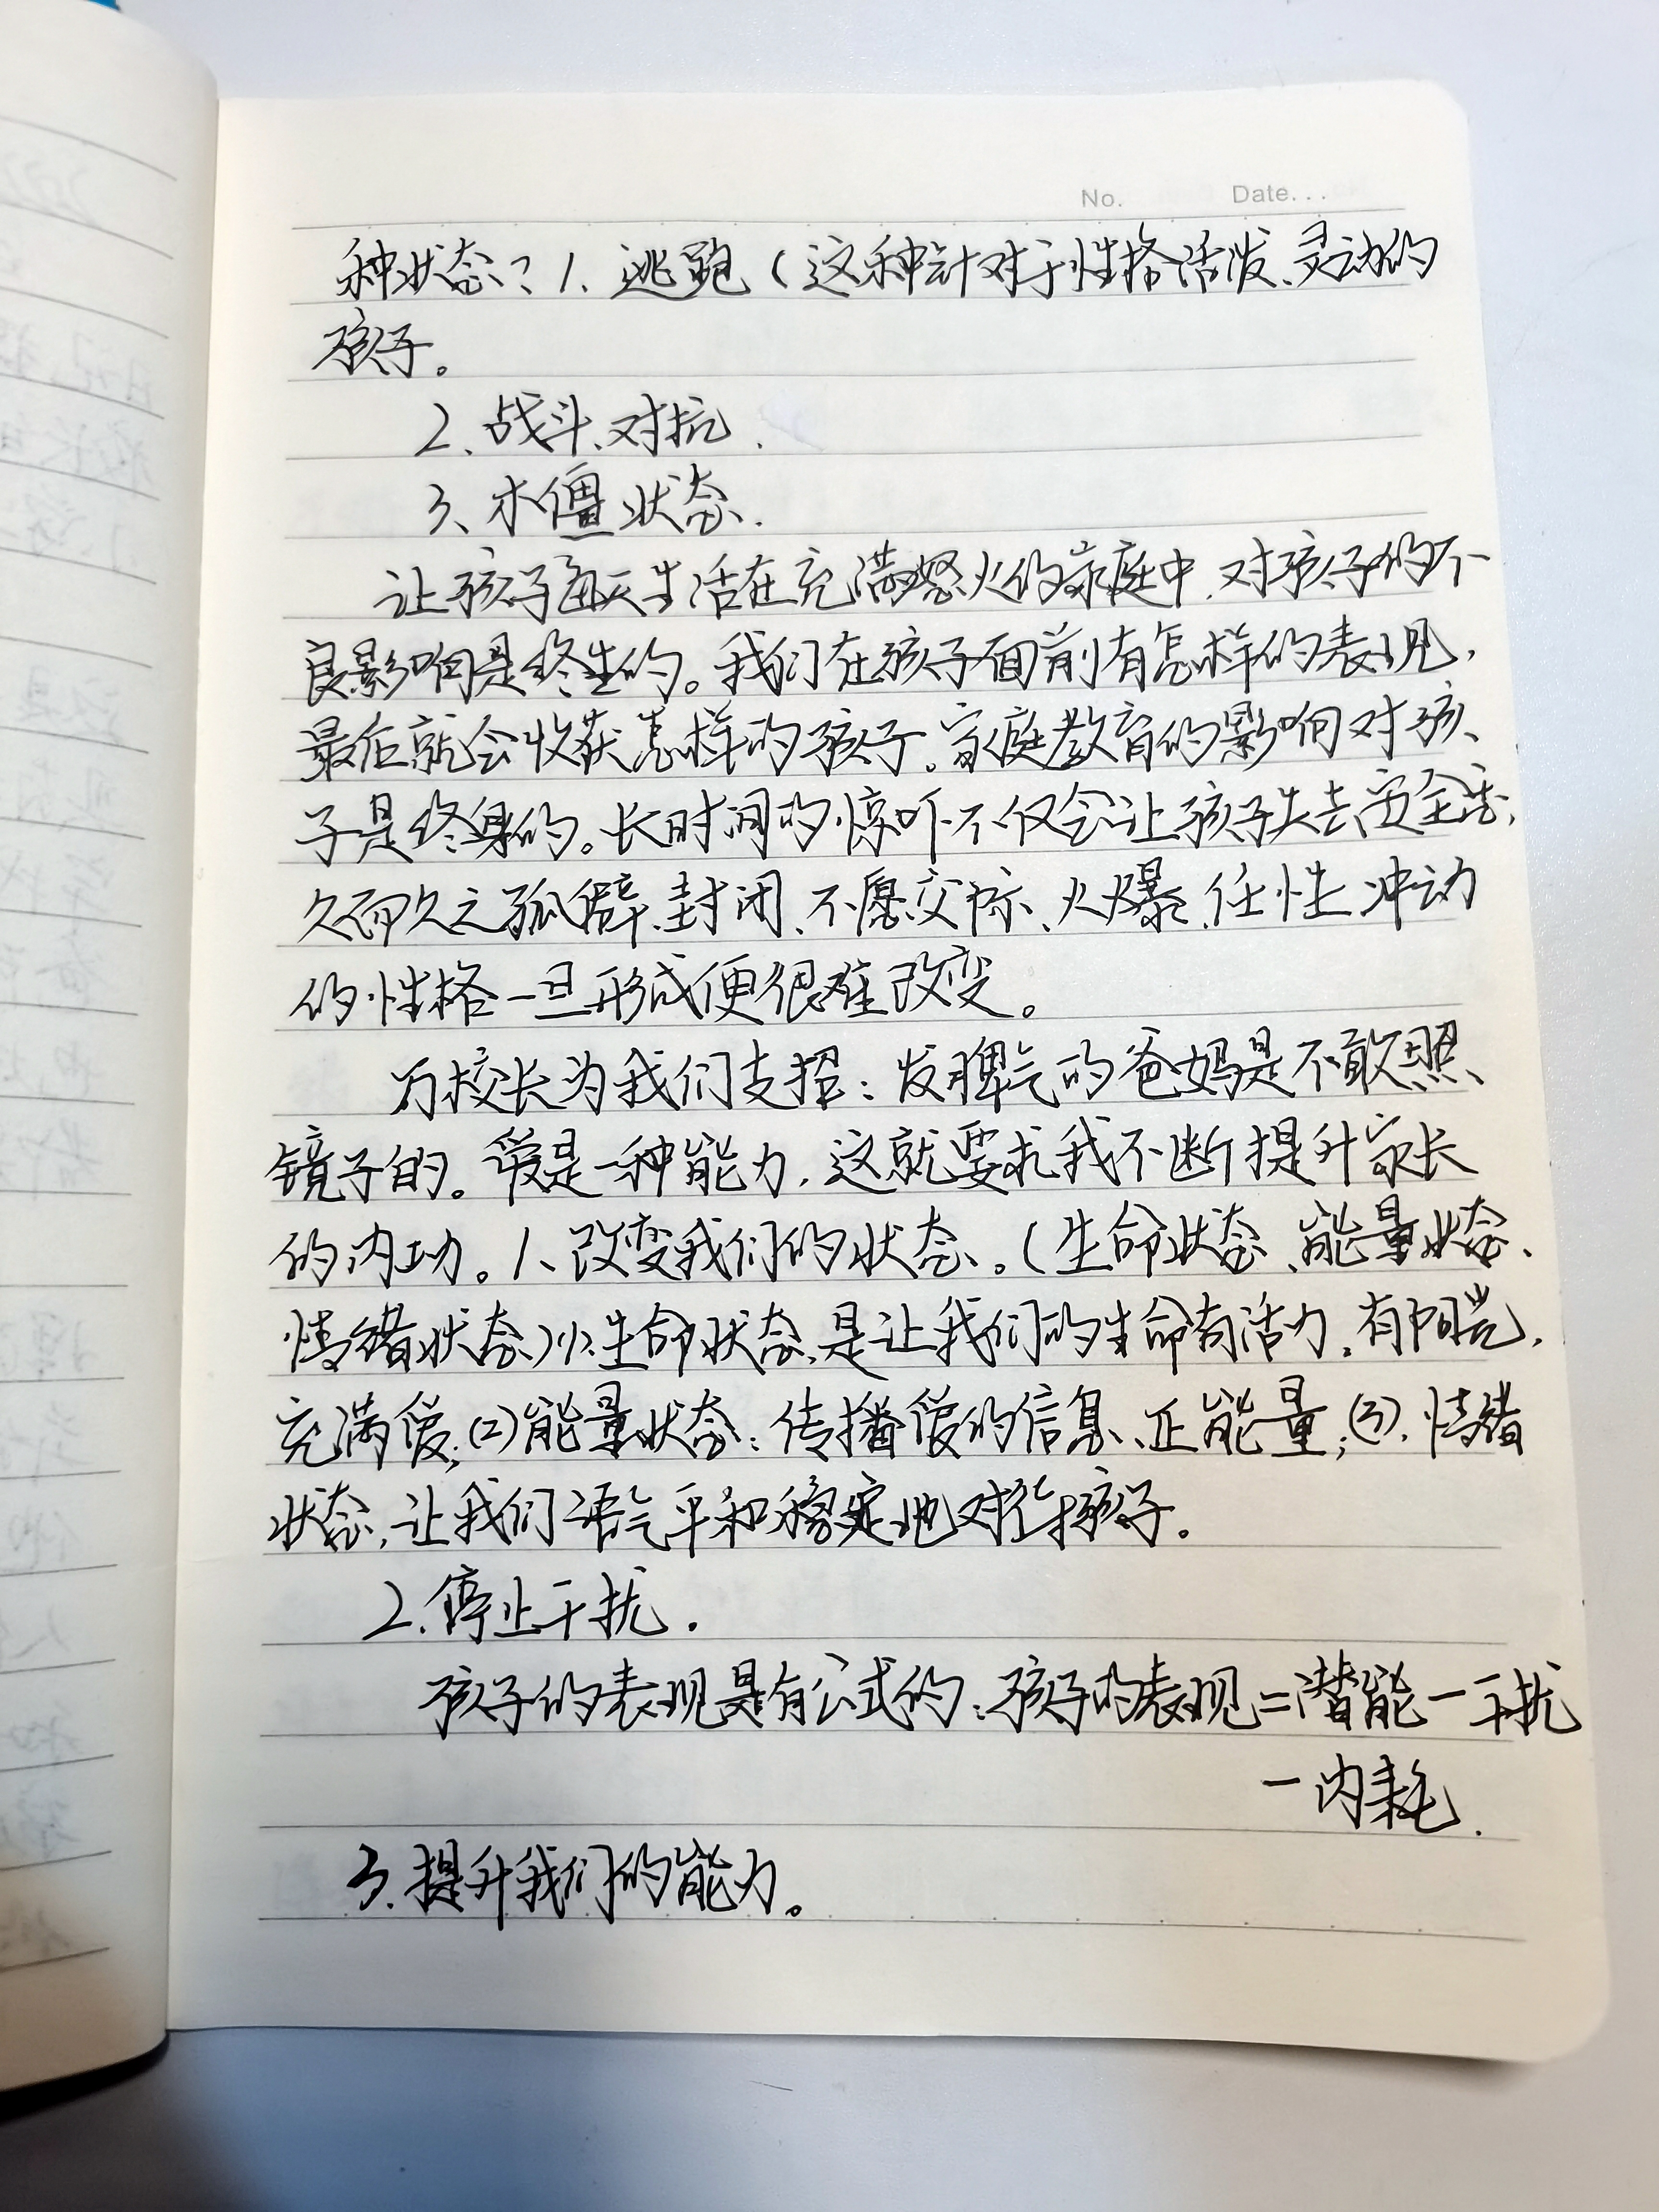 No. Date...
种状态：1、逃跑（这种针对于性格活泼、灵动的
孩子。
2、战斗、对抗.
3、木僵状态.
让孩子每天生活在充满怒火的家庭中，对孩子的不
良影响是终生的。我们在孩子面前有怎样的表现，
最后就会收获怎样的孩子。家庭教育的影响对孩
子是终身的。长时间的惊吓不仅会让孩子失去安全感，
久而久之孤僻、封闭、不愿交际、火爆、任性、冲动
的性格一旦形成便很难改变。
校长为我们支招：发脾气的爸妈是不敢照
镜子的。爱是一种能力，这就要求我不断提升家长
的内功。1、改变我们的状态。（生命状态、能量状态、
情绪状态）(1).生命状态，是让我们的生命有活力，有阳光，
充满爱；(2)能量状态：传播爱的信息、正能量；(3).情绪
状态，让我们语气平和稳定地对待孩子.
2.停止干扰.
孩子的表现是有公式的：孩子的表现=潜能-干扰
-内耗.
3.提升我们的能力。